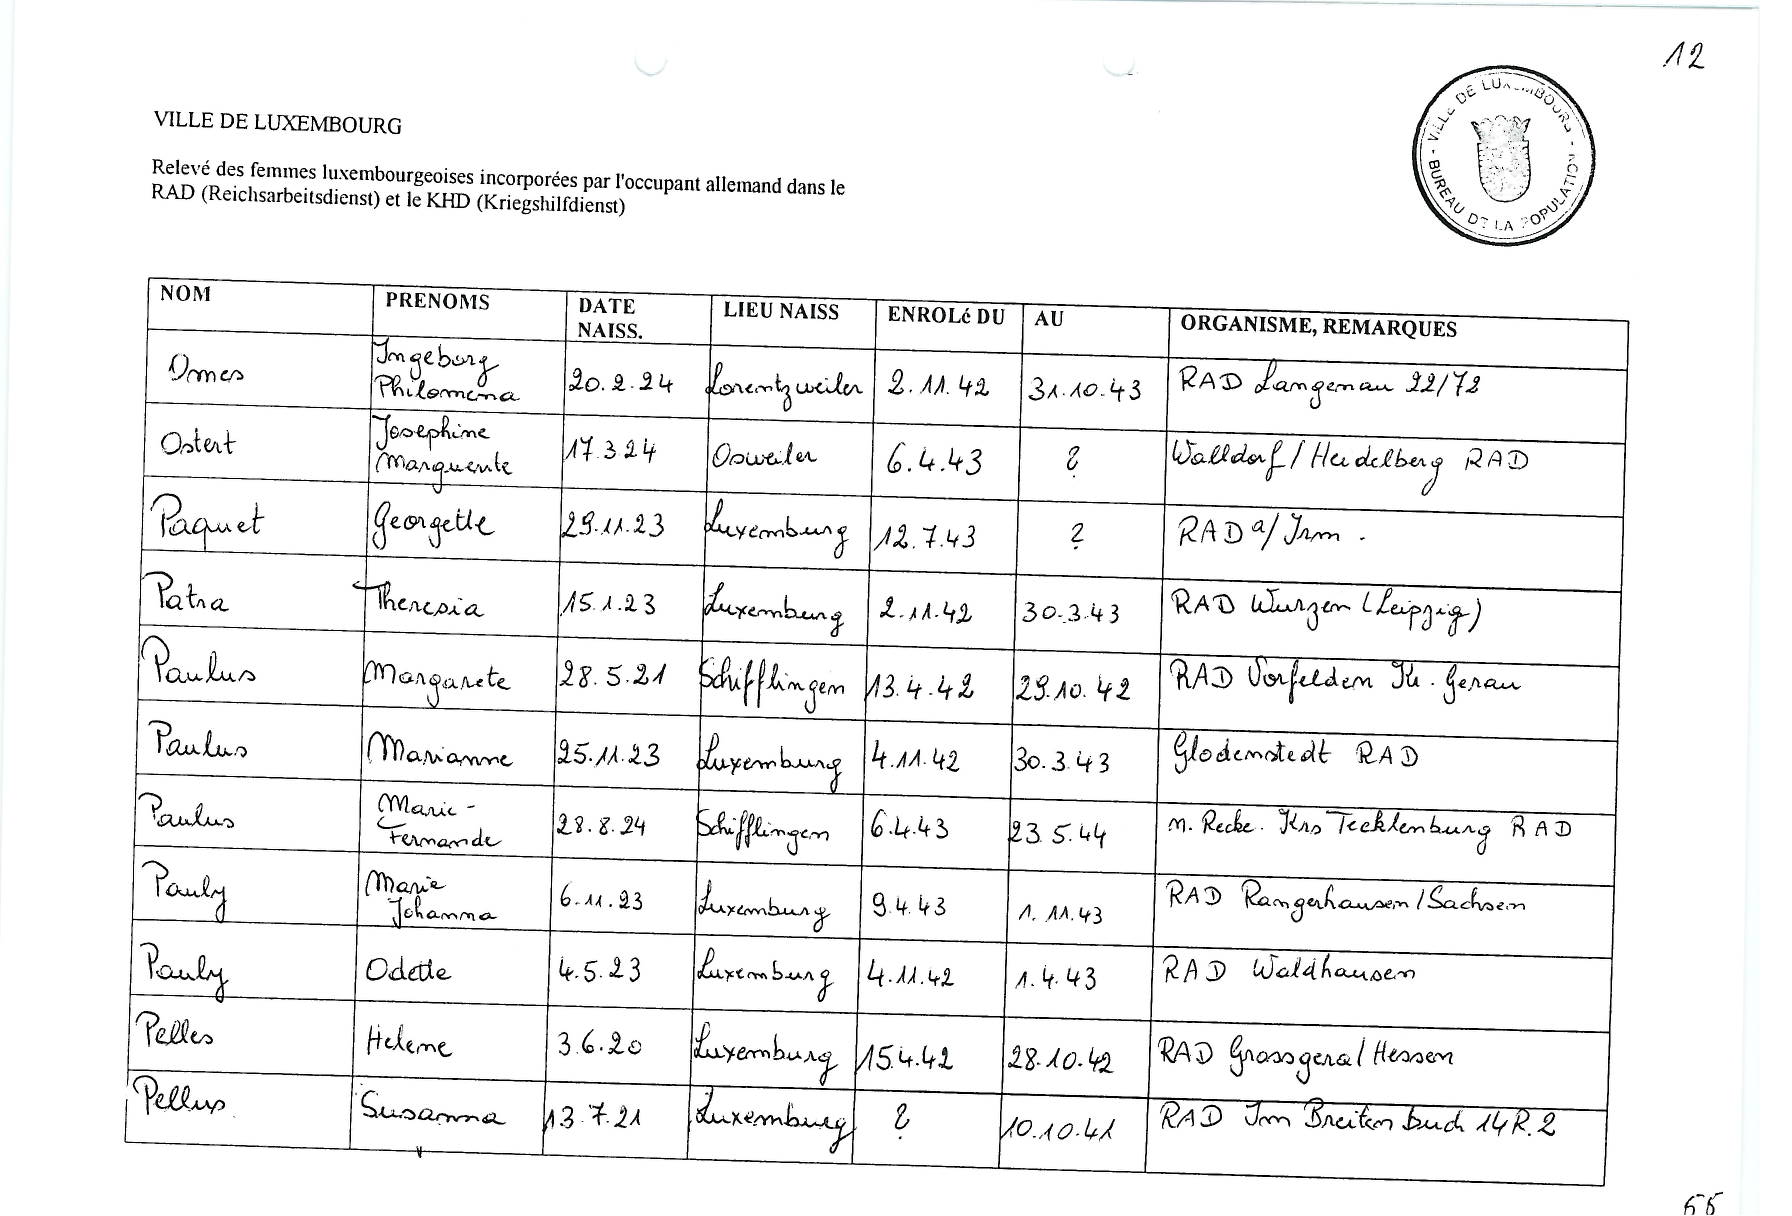 12
VILLE DE LUXEMBOURG
Relevé des femmes luxembourgeoises incorporées par l'occupant allemand dans le
RAD (Reichsarbeitsdienst) et le KHD (Kriegshilfdienst)
VILLE DE LUXEMBOURG - BUREAU DE LA POPULATION -
NOM PRENOMS DATE NAISS. LIEU NAISS ENROLé DU AU ORGANISME, REMARQUES
Omes Ingeborg Philomena 20.2.24 Lorentzweiler 2.11.42 31.10.43 RAD Langenau 22/72
Ostert Josephine Marguerite 17.3.24 Osweiler 6.4.43 ? Walldorf/Heidelberg RAD
Paquet Georgette 29.11.23 Luxemburg 12.7.43 ? RAD a/Inn.
Patra Theresia 15.1.23 Luxemburg 2.11.42 30.3.43 RAD Wurzen (Leipzig)
Paulus Margarete 28.5.21 Schifflingen 13.4.42 29.10.42 RAD Vorfelden Kr. Gerau
Paulus Marianne 25.11.23 Luxemburg 4.11.42 30.3.43 Glodenstedt RAD
Paulus Marie-Fernande 28.8.24 Schifflingen 6.4.43 23.5.44 n. Recke. Krs Tecklenburg RAD
Pauly Marie Johanna 6.11.23 Luxemburg 9.4.43 1.11.43 RAD Rangerhausen/Sachsen
Pauly Odette 4.5.23 Luxemburg 4.11.42 1.4.43 RAD Waldhausen
Pelles Helene 3.6.20 Luxemburg 15.4.42 28.10.42 RAD Grossgera/Hessen
Pellus Susanna 13.7.21 Luxemburg ? 10.10.41 RAD Im Breiten buch 14R.2